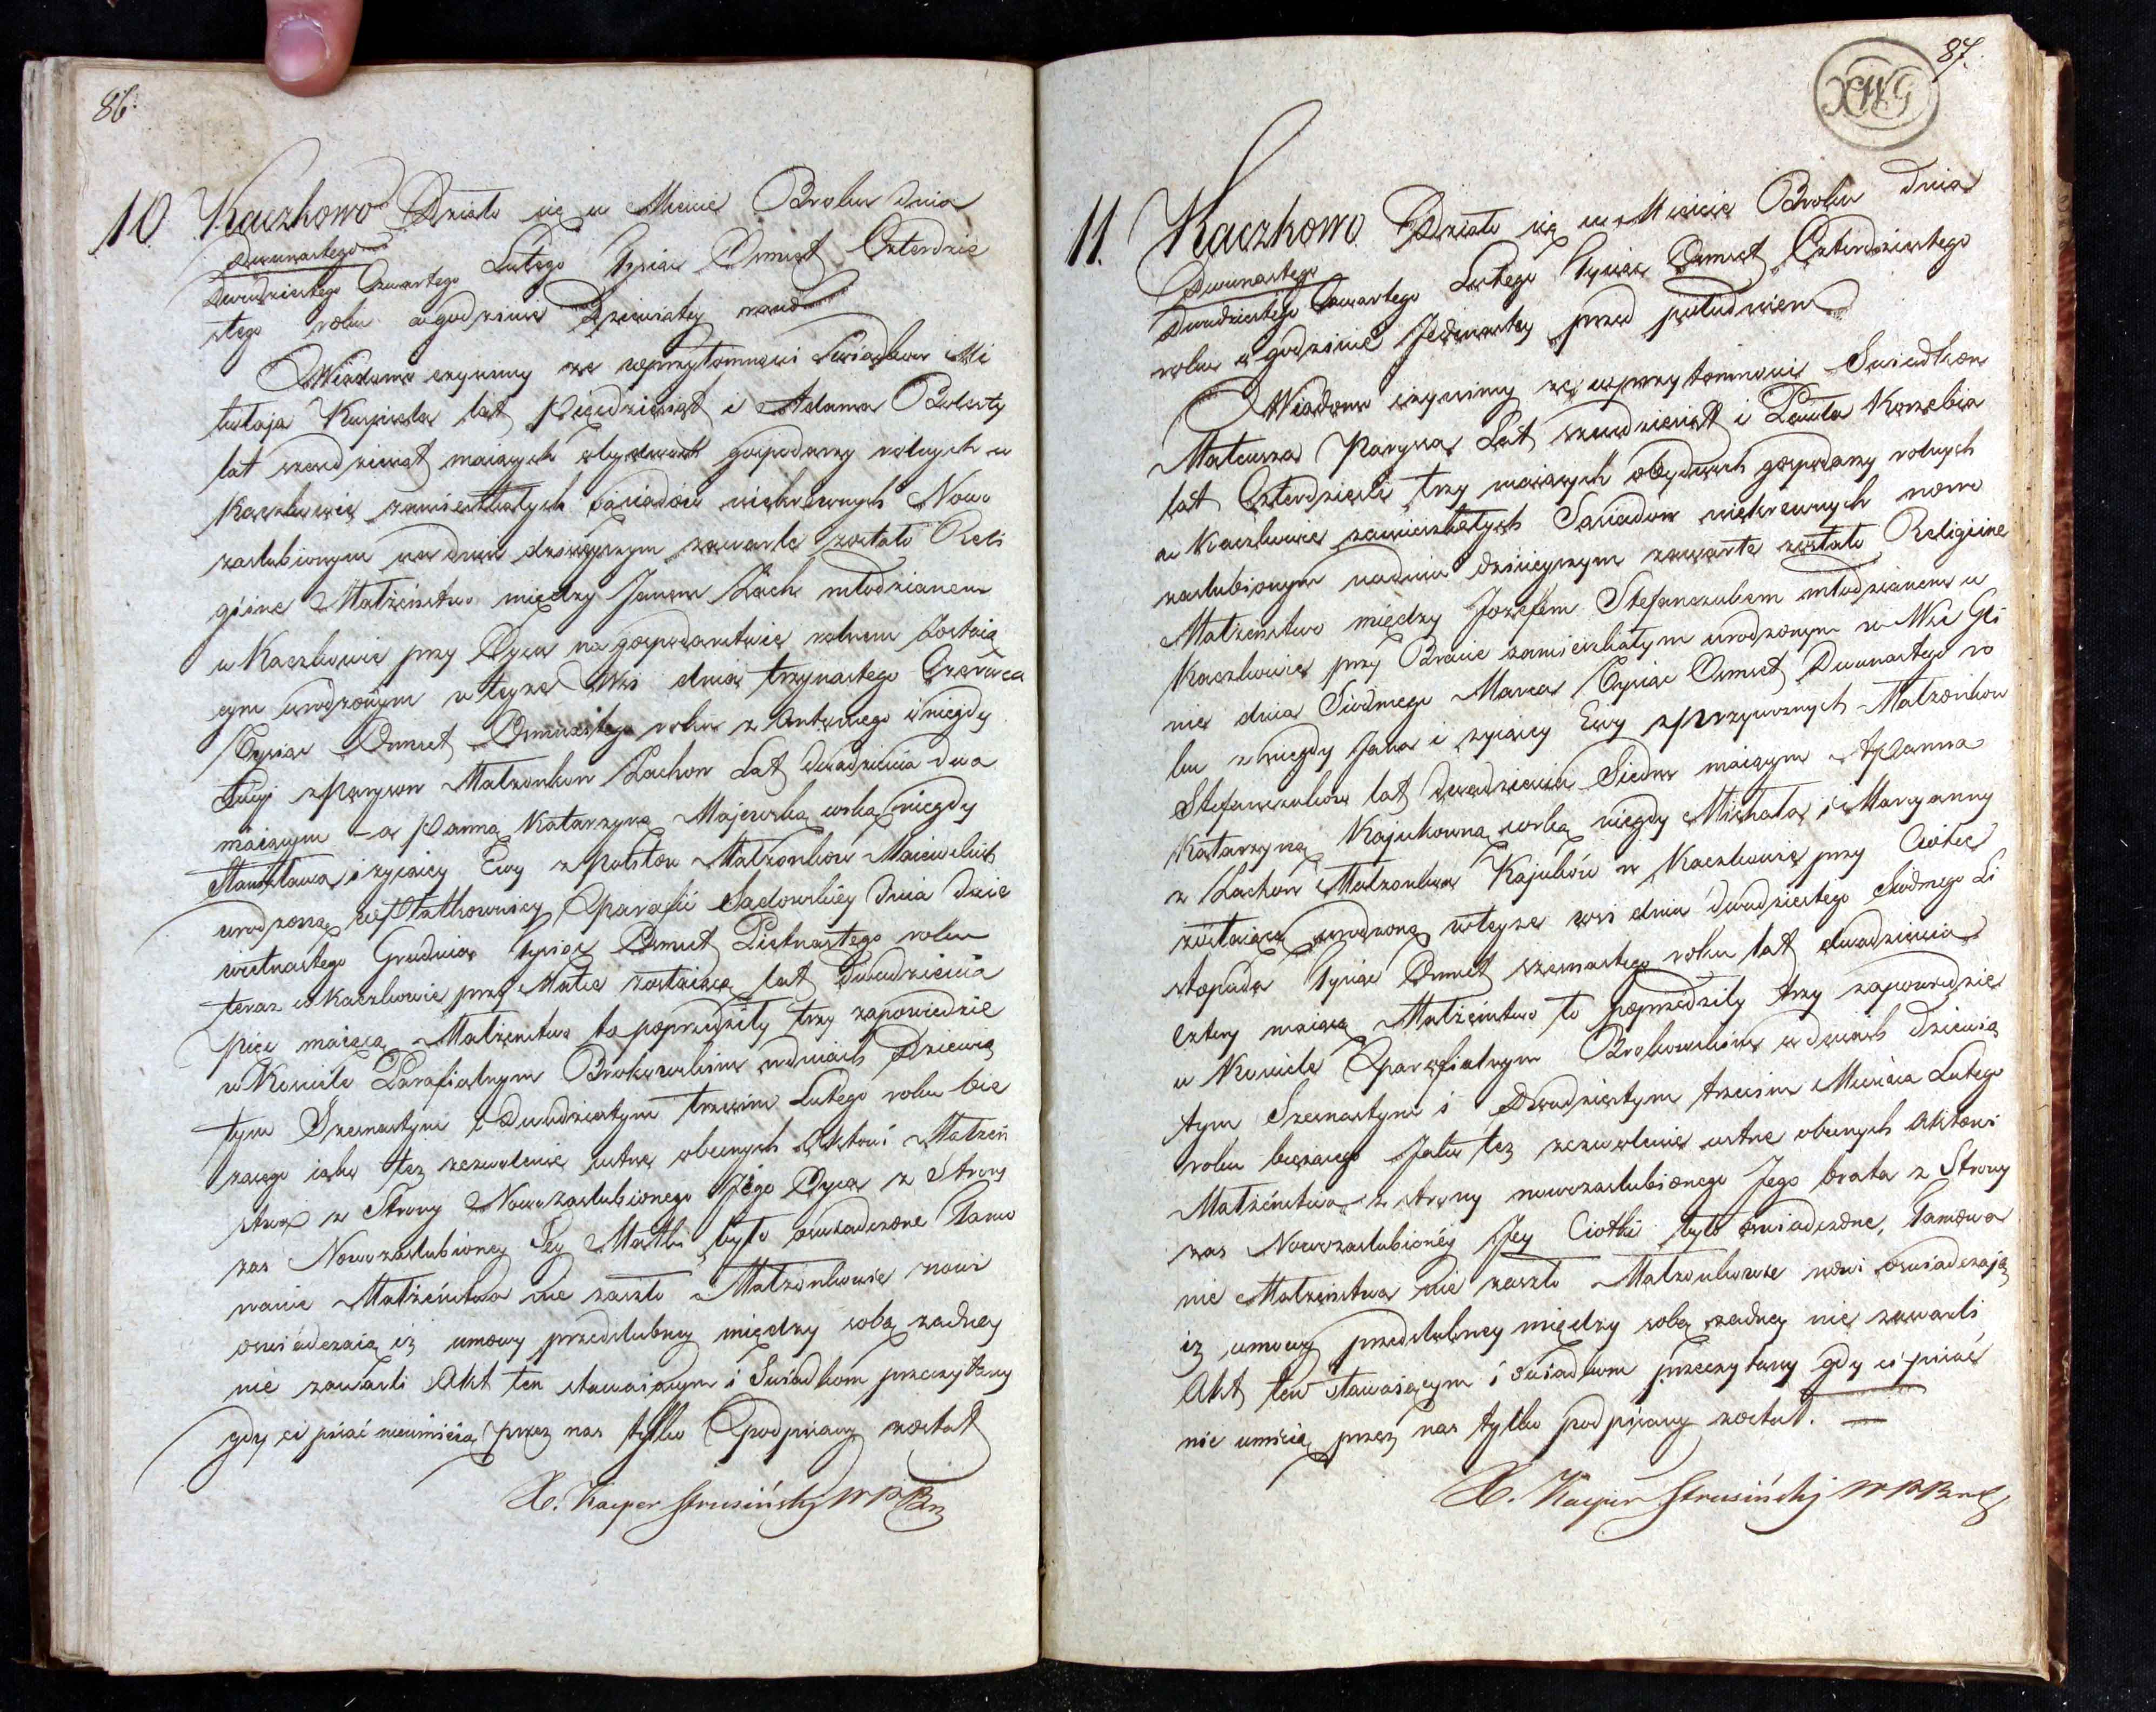 86.
10. Kaczkowo Działo się w Mieście Broku dnia
Dwunastego
Dwudziestego Czwartego Lutego Tysiąc Osmset Czterdzie
stego roku o godzinie Dziewiątey rano
Wiadomo czynimy że wprzytomności Swiadków Mi
kołaja lat Pięćdziesiąt i Adama
lat szesdziesiąt maiących obydwoch gospodarzy rolnych w
Kaczkowie zamieszkałych Sąsiadów niekrewnych Nowo
zaslubionym na dniu dzisieyszym zawarte zostało Reli
giine Małżeństwo między Janem Lach młodzianem
w Kaczkowie przy Oycu na gospodarstwie rolnem zostaią
cym urodzonym w teyze Wsi dnia trzynastego Czerwca
Tysiąc Osmset Osmnastego roku z Antoniego i niegdy
Łucyi z Parysow Małżonkow Lachow Lat dwadzieścia dwa
maiącym – a Panną Katarzyną Majewską córką niegdy
Stanisława i zyiącey Ewy z Małzonkow Maiewskich
urodzoną Parafii Sadowskiey dnia dzie
więtnastego Grudnia Tysiąc Osmset Piętnastego roku
teraz w Kaczkowie przy Matce zostaiącą lat Dwadzieścia
pięc maiącą Małżeństwo to poprzedziły trzy zapowiedzie
w Kościele Parafialnym Brokowskim w dniach Dziewią
tym Szesnastym i Dwudziestym trzecim Lutego roku bie
zącego iako tez zezwolenie ustne obecnych Aktowi Małzeń
stwa z Strony Nowozaslubionego Jego Oyca z Strony
zas Nowozaslubioney Jey Matki było oswiadczone Tamo
wanie Małżeństwa nie zaszło Małżonkowie nowi
oswiadczaią iz umowy przedslubney między sobą zadney
nie zawarli Akt ten stawaiącym i Swiadkom przeczytany
gdy ci pisać nieumieią przez nas tylko podpisany został
X. Kacper Strusiński
87.
XWG
11. Kaczkowo Działo się w Mieście Broku dnia
Dwunastego
Dwudziestego Czwartego Lutego Tysiąc Osmset Czterdziestego
roku o godzinie Jedenastey przed południem
Wiadomo czynimy ze wprzytomności Swiadkow
Mateusza Parysa Lat szesdziesiąt i Pawła
lat Czterdzieści trzy maiących obydwoch gospodarzy rolnych
w Kaczkowie zamieszkałych Sąsiadow niekrewnych nowo
zaslubionym nadniu dzisieyszym zawarte zostało Religiine
Małżeństwo między Jozefem Stefanczukiem młodzianem w
Kaczkowie przy Bracie zamieszkałym urodzonym w Wsi Gli
nie dnia Siódmego Marca Tysiąc Osmset Dwunastego ro
ku z niegdy Jana i zyiącey Ewy z Małżonkow
Stefanczukow lat dwadzieścia Siedm maiącym A Panną
Katarzyną Kajukowną córką niegdy Michała i Maryanny
z Lachow Małżonkow Kajuków w Kaczkowie przy Ciotce
zostaiącą urodzoną w teyze wsi dnia dwudziestego Siódmego Li
stopada Tysiąc Osmset szesnastego roku lat dwadzieścia
cztery maiącą Małżeństwo to poprzedziły trzy zapowiedzie
w Kosciele Parafialnym Brokowskim w dniach dziewią
tym Szesnastym i Dwudziestym trzecim Miesiąca Lutego
roku biezącego Jako tez zezwolenie ustne obecnych Aktowi
Małżeństwa z strony nowozaslubionego Jego brata z Strony
zas Nowozaslubioney Jey Ciotki było oswiadczone, Tamowa
nie Małżeństwa nie zaszło Małzonkowie nowi oswiadczają
iz umowy przedslubney między sobą zadney nie zawarli
Akt ten stawaiącym i swiadkom przeczytany gdy ci pisać
nie umieią przez nas tylko podpisany został. —
X. Kacper Strusiński